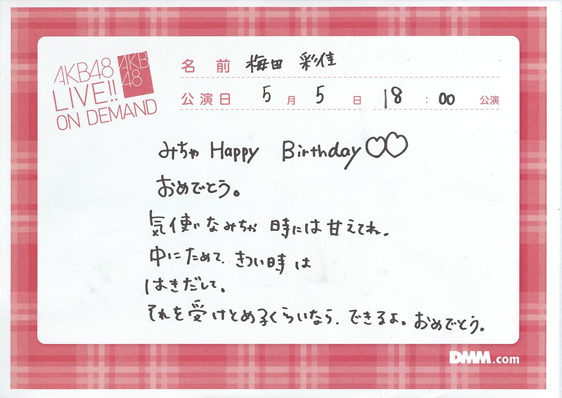 AKB48
LIVE!!
ON DEMAND
AKB
48
名前 梅田 彩佳
公演日 5月5日 18:00 公演
みちゃ Happy Birthday♡♡
おめでとう。
気使いなみちゃ 時には甘えてね。
中にためて、きつい時は
はきだして。
それを受けとめるくらいなら、できるよ。おめでとう。
DMM.com